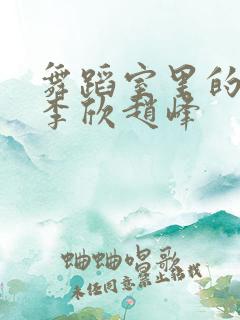 舞蹈室里的
李欣赵峰
蛐蛐唱歌
未经同意禁止转载